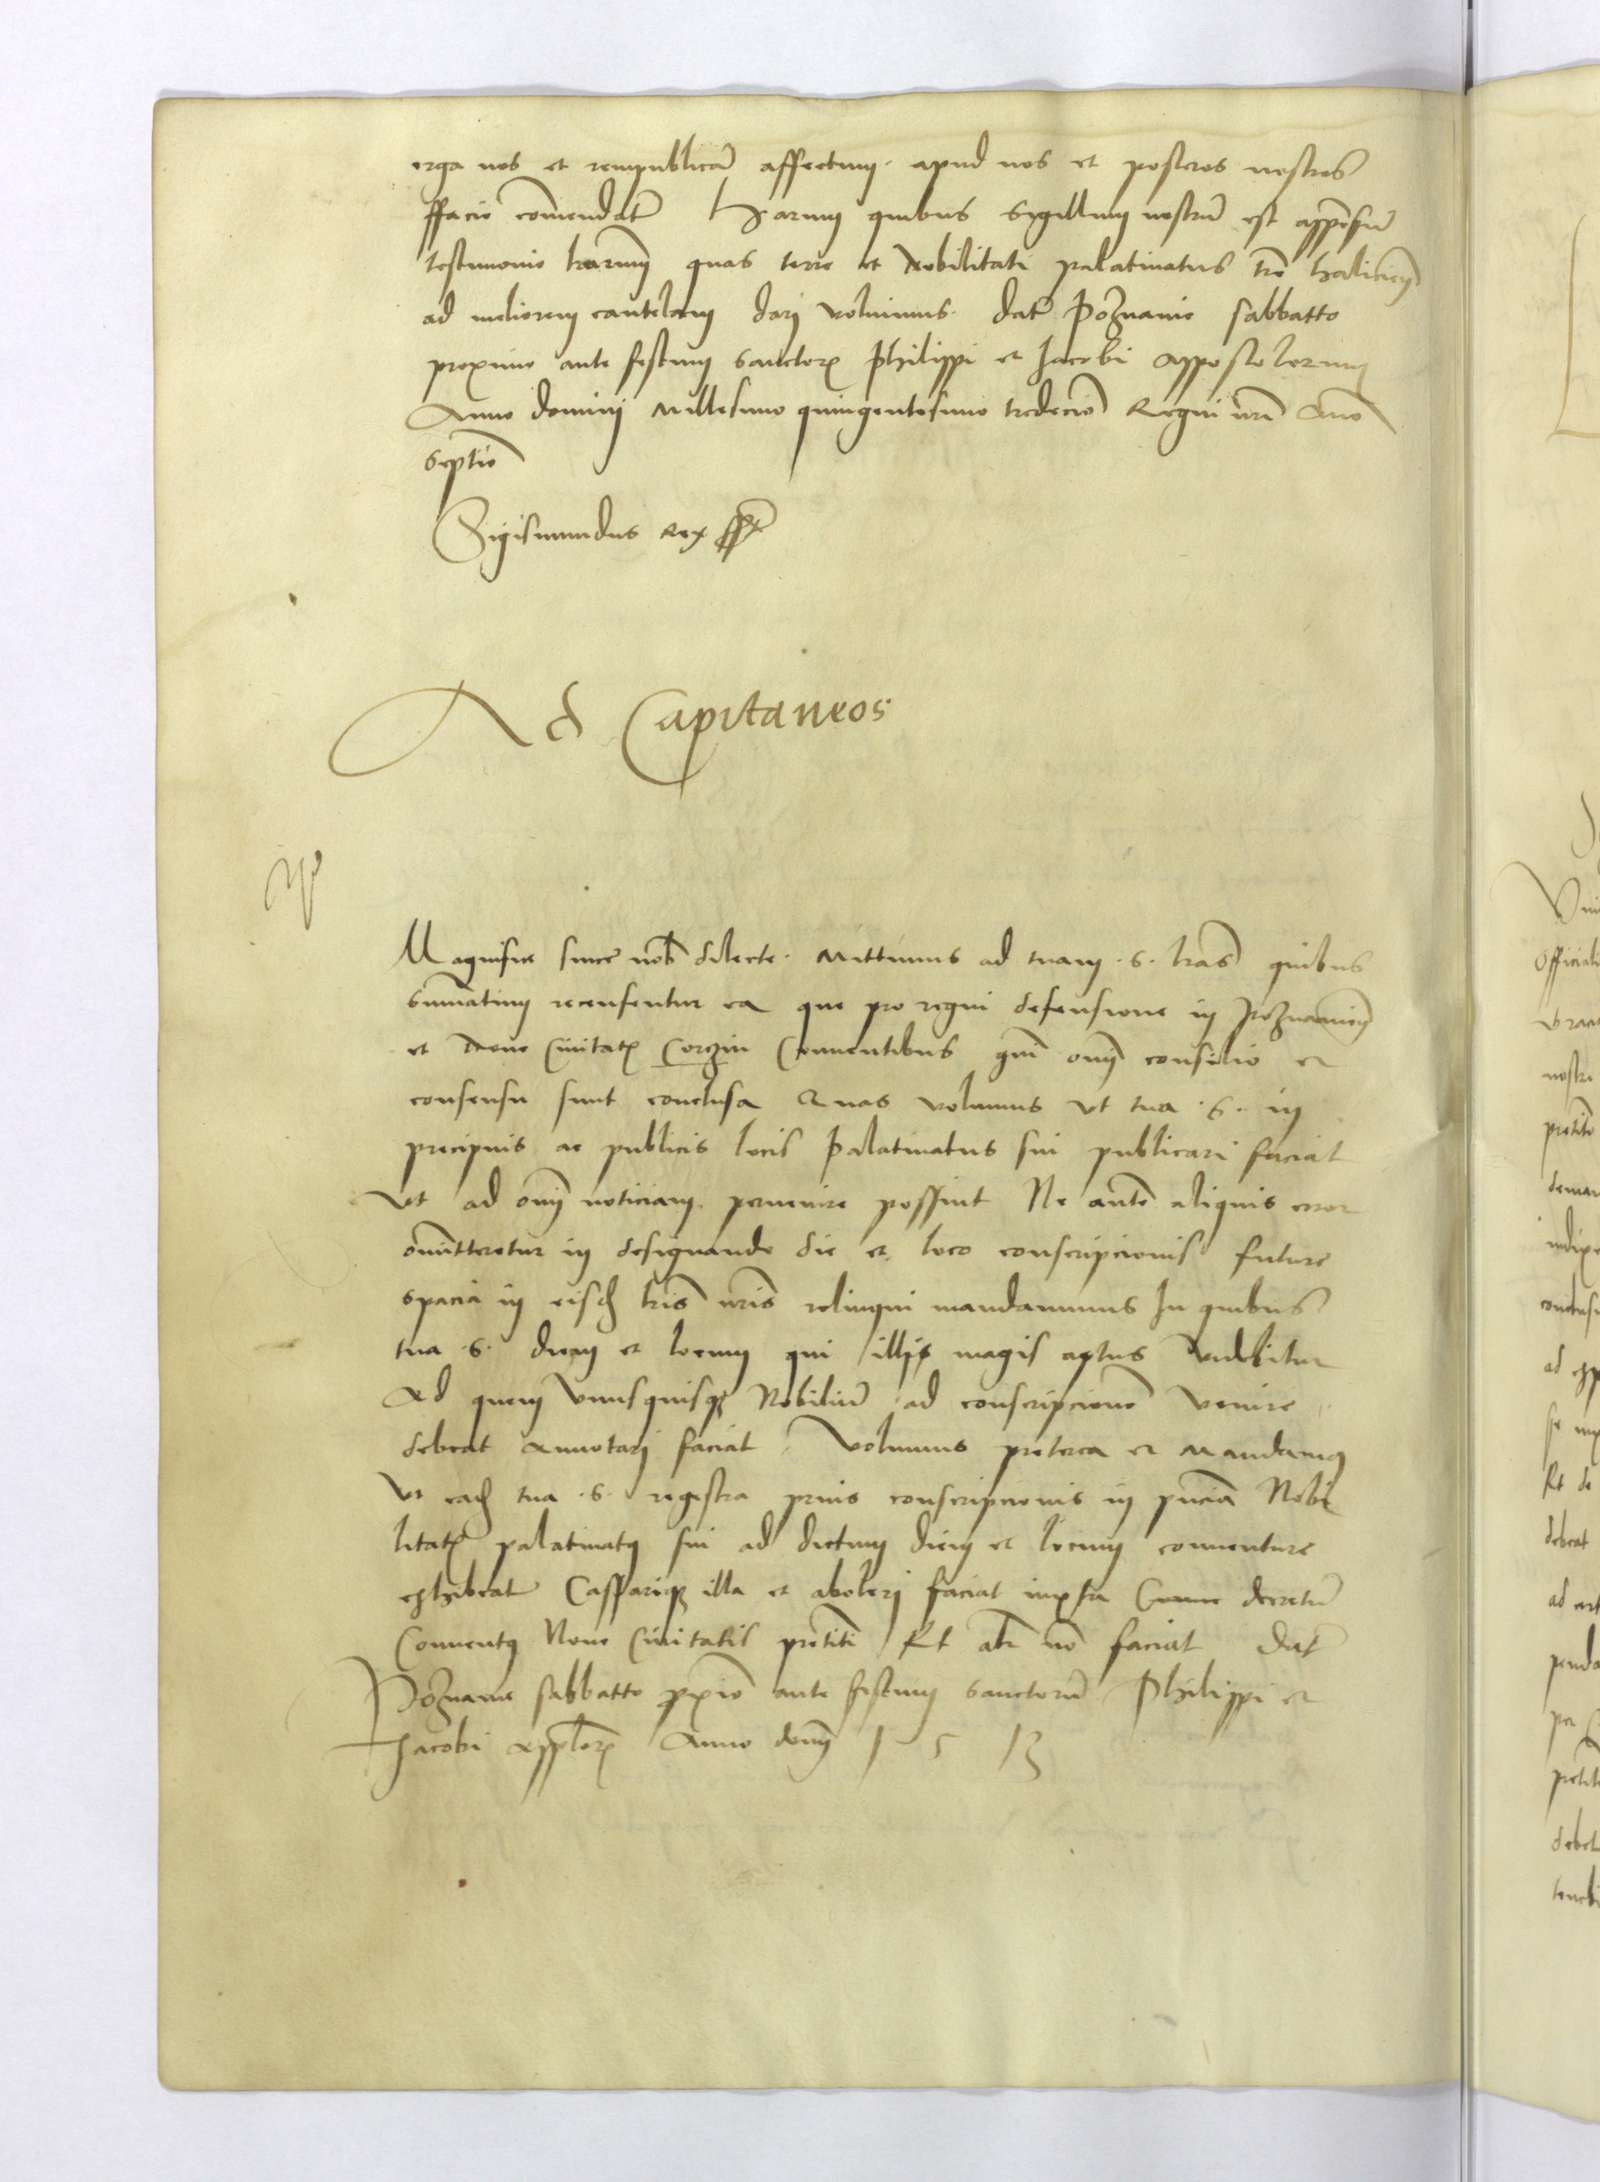 erga nos et rempublicā affectum. apud nos et posteros nostros
ffacie cōmendatū Harum quibus Sigillum nostrū est appēsū
testimonio lrarum quas terre et Nobilitati palatinatus tre haliciēn
ad meliorem cautelam darj voluimus. datū Poznanie sabbatto
proximo ante festum Sanctorꝝ Philippi et Jacobi Appostolorum
Anno dominj Millesimo quingentesimo tredecīo Regni nri Āno
Septīo
Sigismundus Rex sspt
Ad Capitaneos
Magnifice sincē nob dilecte. Mittimus ad tuam .S. lras quibus
summatim recensentur ea que pro regni defensione in Poznanien
et Noue Ciuitatꝭ Corzin Conuentibus gnī oīm consilio et
consensu sunt conclusa Quas volumus vt tua .S. in
precipuis ac publicis locis Palatinatus sui publicari faciat
Vt ad oīm noticiam peruenire possint Ne autē aliquis error
ōmitteretur in designando die et loco conscripcionis future
Spacia in eisdē lris nris relinqui mandauimus In quibus
tua .S. diem et locum qui illis magis aptus videbitur
Ad quem vnusquisqꝫ Nobiliū ad conscripcionē venire
debeat Annotarj faciat Volumus preterea et Mandamus
Vt eadē tua .S. registra prius conscripcionis in pnciā Nobi
litatꝭ palatinatꝰ sui ad dictum diem et locum conuenture
exhibeat Cassariqꝫ illa et abolerj faciat iuxta Conue decretū
Conuentꝰ Noue Ciuitatis pretiti Et alr nō faciat Datū
Poznanie sabbatto prximo ante festum Sanctorū Philippi et
Jacobi Applorꝝ Anno domj 1 5 13